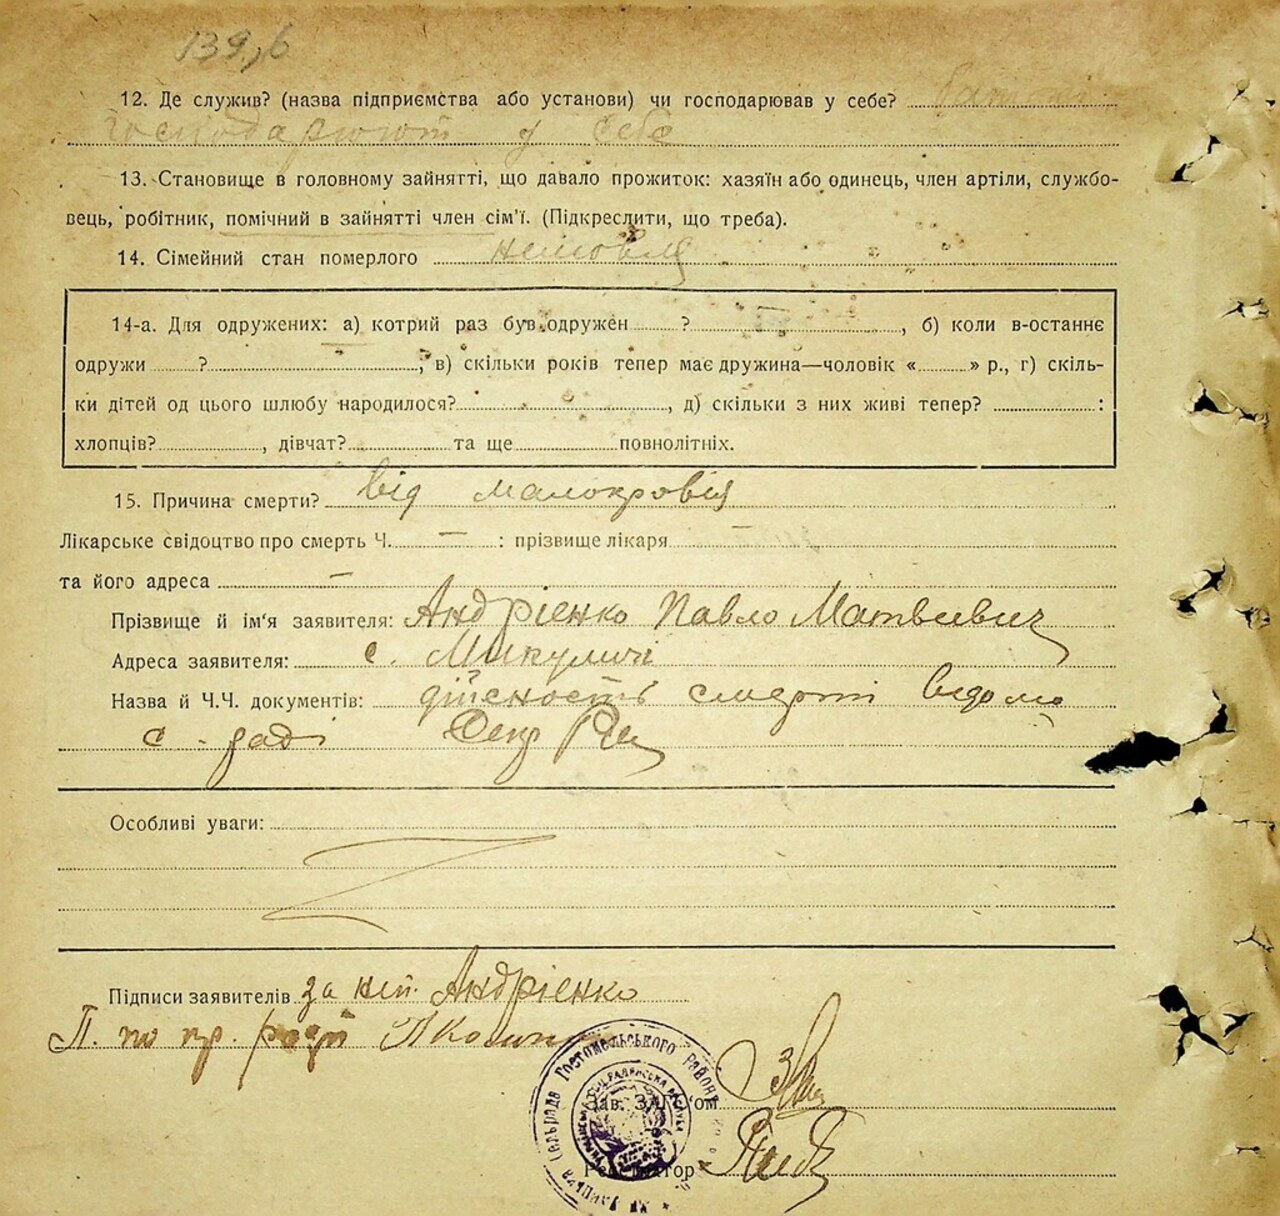 139,б
12. Де служив? (назва підприємства або установи) чи господарював у себе?
господарюют у себе
13. Становище в головному зайнятті, що давало прожиток: хазяїн або одинець, член артіли, службо-
вець, робітник, помічний в зайнятті член сім'ї. (Підкреслити, що треба).
14. Сімейний стан померлого немовля
14-а. Для одружених: а) котрий раз був одружен ? , б) коли в-останнє
одружи ? , в) скільки років тепер має дружина—чоловік « » р., г) скіль-
ки дітей од цього шлюбу народилося? , д) скільки з них живі тепер? :
хлопців? , дівчат? та ще повнолітніх.
15. Причина смерти? від малокровія
Лікарське свідоцтво про смерть Ч. — : прізвище лікаря —
та його адреса —
Прізвище й ім'я заявителя: Андрієнко Павло Матвеевич
Адреса заявителя: с. Микуличі
Назва й Ч.Ч. документів: дійсность смерті відома
с. раді Секр
Особливі уваги:
Підписи заявителів за неп. Андрієнко
П. по пр.
Гостомельського району
Зав. ЗАГС'ом
Реєстратор